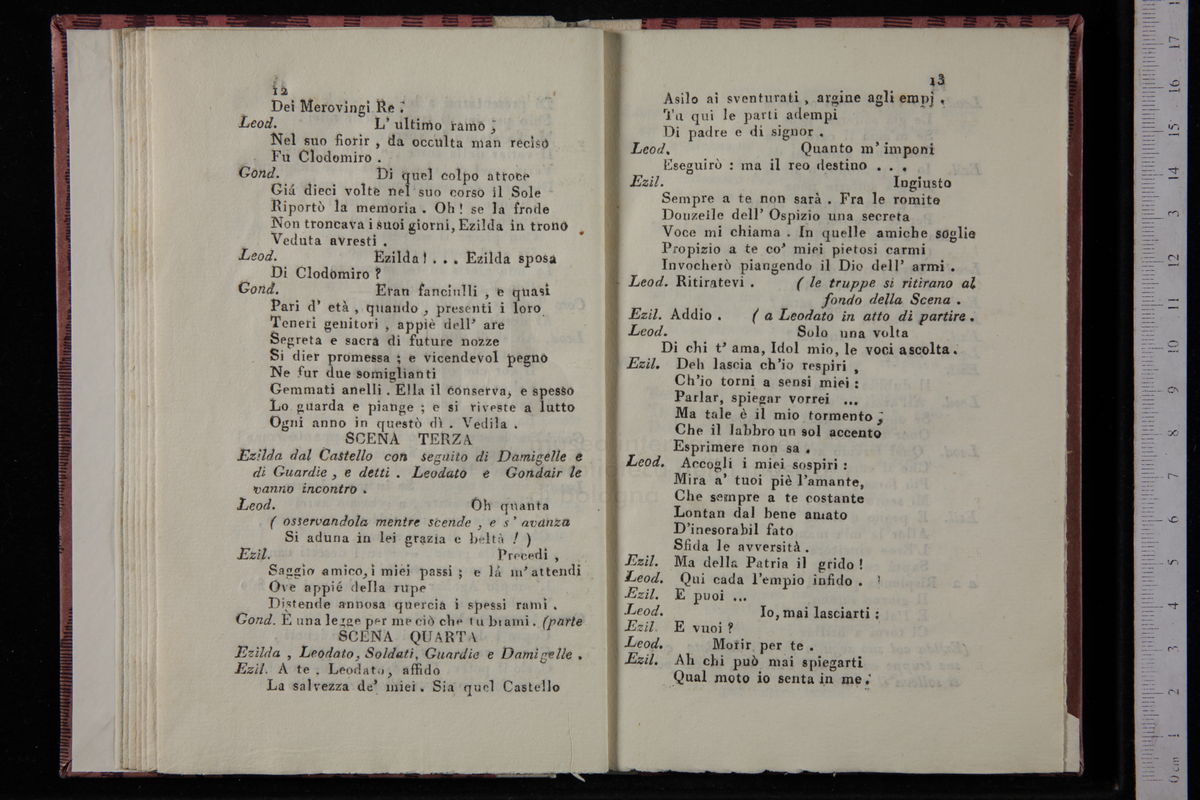 12
Dei Merovingi Re ;
Leod. L' ultimo ramo ;
Nel suo fiorir , da occulta man reciso
Fu Clodomiro .
Gond. Di quel colpo atroce
Giá dieci volte nel suo corso il Sole
Riportò la memoria . Oh ! se la frode
Non troncava i suoi giorni, Ezilda in trono
Veduta avresti .
Leod. Ezilda ! . . . Ezilda sposa
Di Clodomiro ?
Gond. Eran fanciulli , e quasi
Pari d' età , quando , presenti i loro
Teneri genitori , appiè dell' are
Segreta e sacra di future nozze
Si dier promessa ; e vicendevol pegno
Ne fur due somiglianti
Gemmati anelli . Ella il conserva, e spesso
Lo guarda e piange ; e si riveste a lutto
Ogni anno in questo dì . Vedila .
SCENA TERZA
Ezilda dal Castello con seguito di Damigelle e
di Guardie , e detti . Leodato e Gondair le
vanno incontro .
Leod. Oh quanta
( osservandola mentre scende , e s' avanza
Si aduna in lei grazia e beltà ! )
Ezil. Precedi ,
Saggio amico, i miei passi ; e lá m' attendi
Ove appié della rupe
Distende annosa quercia i spessi rami .
Gond. È una legge per me ciò che tu brami. (parte
SCENA QUARTA
Ezilda , Leodato, Soldati, Guardie e Damigelle .
Ezil. A te , Leodato, affido
La salvezza de' miei. Sia quel Castello
13
Asilo ai sventurati , argine agli empj ,
Tu qui le parti adempi
Di padre e di signor .
Leod. Quanto m' imponi
Eseguirò : ma il reo destino . . .
Ezil. Ingiusto
Sempre a te non sarà . Fra le romite
Donzelle dell' Ospizio una secreta
Voce mi chiama . In quelle amiche soglie
Propizio a te co' miei pietosi carmi
Invocherò piangendo il Dio dell' armi .
Leod. Ritiratevi . ( le truppe si ritirano al
fondo della Scena .
Ezil. Addio . ( a Leodato in atto di partire .
Leod. Solo una volta
Di chi t' ama, Idol mio, le voci ascolta.
Ezil. Deh lascia ch'io respiri ,
Ch'io torni a sensi miei :
Parlar, spiegar vorrei ...
Ma tale è il mio tormento ;
Che il labbro un sol accento
Esprimere non sa .
Leod. Accogli i miei sospiri :
Mira a' tuoi piè l'amante,
Che sempre a te costante
Lontan dal bene amato
D'inesorabil fato
Sfida le avversità .
Ezil. Ma della Patria il grido !
Leod. Qui cada l'empio infido .
Ezil. E puoi ...
Leod. Io, mai lasciarti :
Ezil. E vuoi ?
Leod. Morir per te .
Ezil. Ah chi può mai spiegarti
Qual moto io senta in me ;